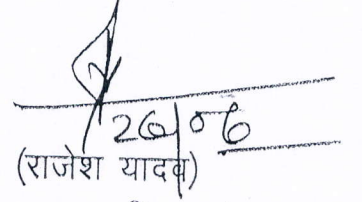 26/06
(राजेश यादव)